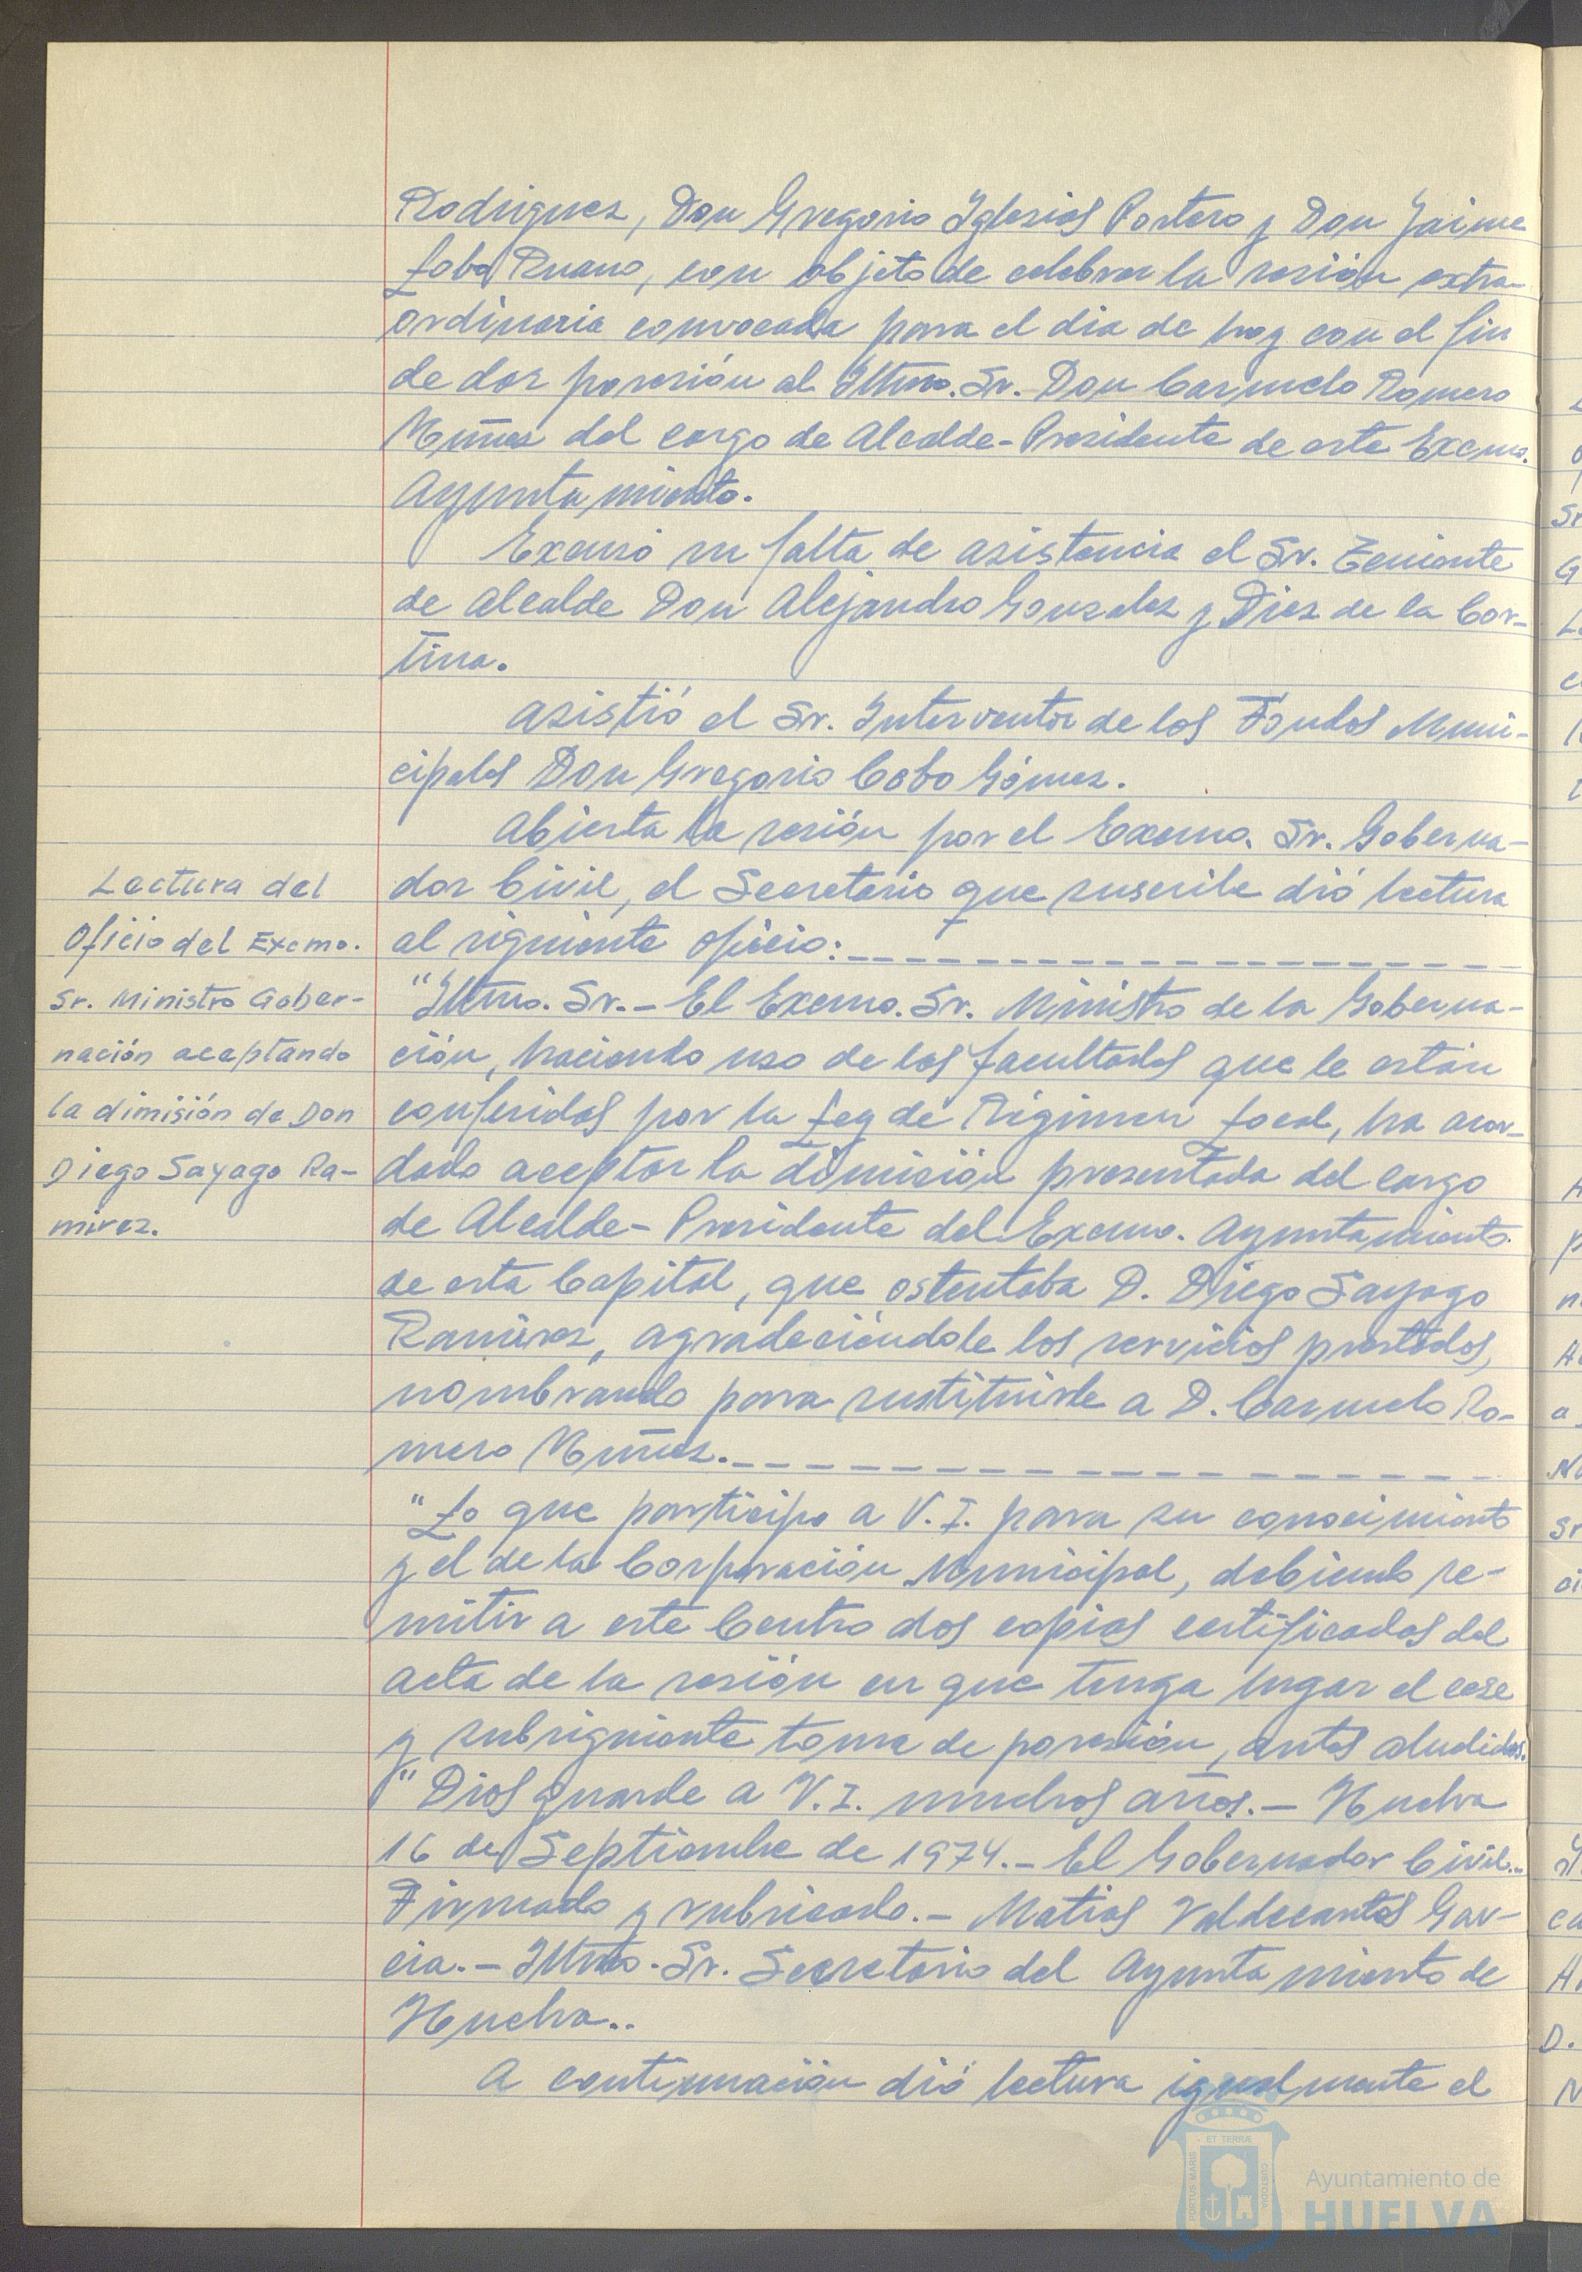 Rodriguez, Don Gregorio Iglesias Portero y Don Jaime
Lobo Ruano, con objeto de celebrar la sesión extra-
ordinaria convocada para el dia de hoy con el fin
de dar posesión al Iltmo. Sr. Don Carmelo Romero
Muñoz del cargo de Alcalde-Presidente de este Excmo.
Ayuntamiento.
Excusó su falta de asistencia el Sr. Teniente
de alcalde Don Alejandro Gonzalez y Diez de la Cor-
tina.
Asistió el Sr. Interventor de los Fondos Muni-
cipales Don Gregorio Cobo Gómez.
Abierta la sesión por el Excmo. Sr. Goberna-
dor Civil, el Secretario que suscribe dió lectura
al siguiente oficio:
Lectura del
Oficio del Excmo.
Sr. Ministro Gober-
nación aceptando
la dimisión de Don
Diego Sayago Ra-
mirez.
"Iltmo. Sr.- El Excmo. Sr. Ministro de la Goberna-
ción, haciendo uso de las facultades que le están
conferidas por la Ley de Régimen Local, ha acor-
dado aceptar la dimisión presentada del cargo
de Alcalde-Presidente del Excmo. Ayuntamiento
de esta Capital, que ostentaba D. Diego Sayago
Ramirez, agradeciéndole los servicios prestados,
nombrando para sustituirle a D. Carmelo Ro-
mero Muñoz.
"Lo que participo a V.I. para su conocimiento
y el de la Corporación Municipal, debiendo re-
mitir a este Centro dos copias certificadas del
acta de la sesión en que tenga lugar el cese
y subsiguiente toma de posesión, antes aludidos.
"Dios guarde a V.I. muchos años.- Huelva
16 de Septiembre de 1974.- El Gobernador Civil..
Firmado y rubricado.- Matias Valdecantos Gar-
cia.- Iltmo. Sr. Secretario del Ayuntamiento de
Huelva..
A continuación dió lectura igualmente el
ET TERRÆ
PORTUS MARIS
CUSTODIA
Ayuntamiento de
HUELVA